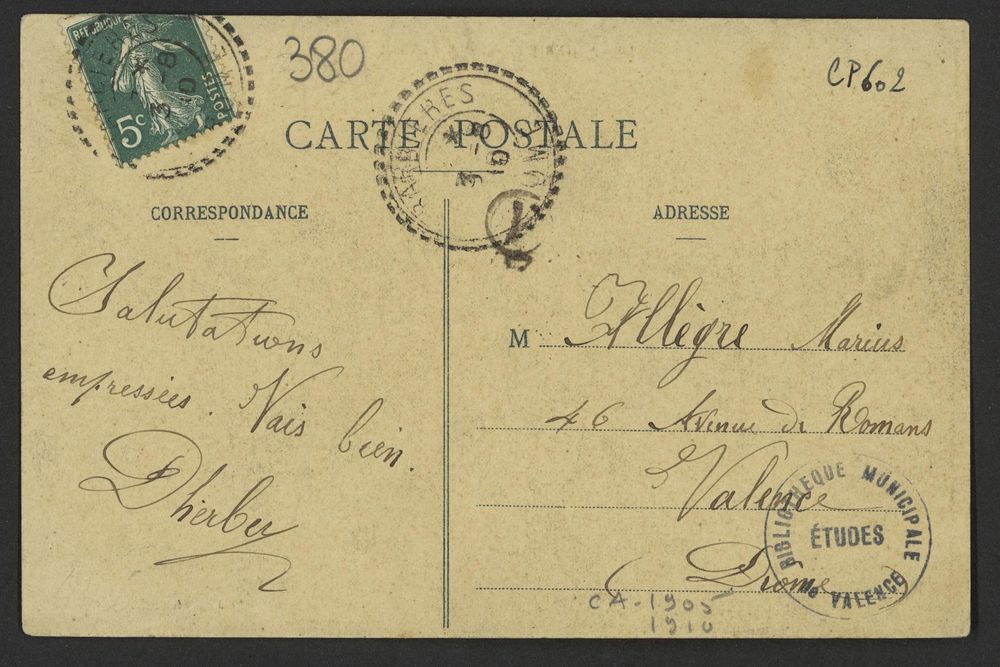 380
CP602
POSTES
5c
BARBIÈRES
3 -8
10
CARTE POSTALE
CORRESPONDANCE
ADRESSE
Salutations
empressées. Vais bien.
Dherbey
M Allègre Marius
46 Avenue de Romans
Valence
Drome
BIBLIOTHEQUE MUNICIPALE
ÉTUDES
DE VALENCE
CA-1905
1910